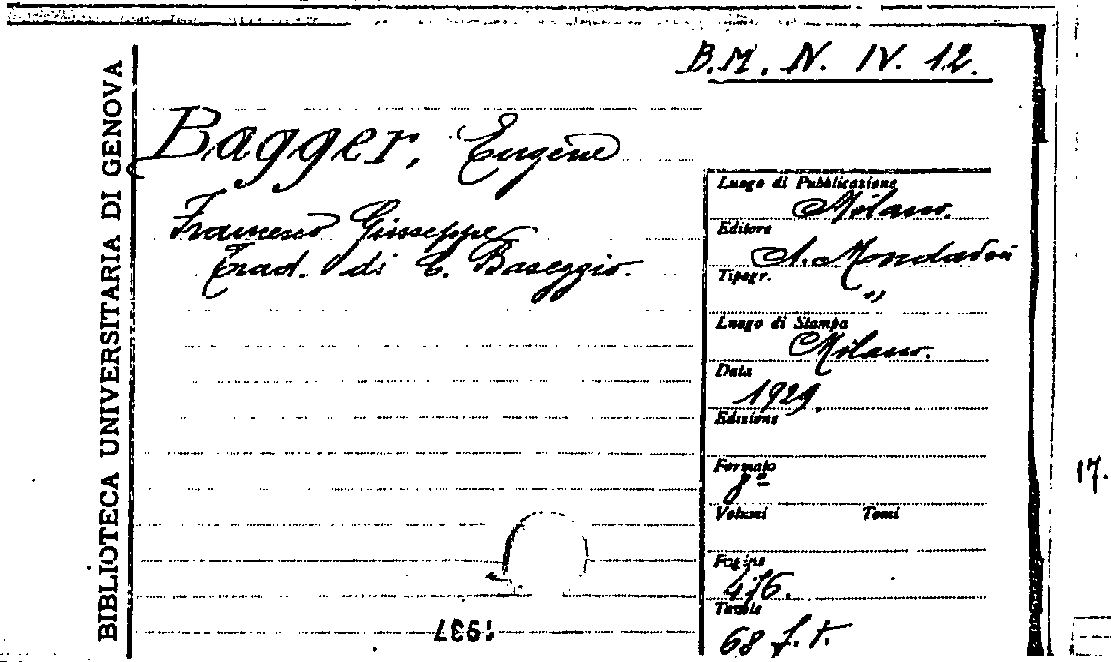 B.M. N. IV. 12.
BIBLIOTECA UNIVERSITARIA DI GENOVA
Bagger, Eugène
Francesco Giuseppe
Trad. di C. Baseggio.
Luogo di Pubblicazione
Milano.
Editore
A. Mondadori
Tipogr.
"
Luogo di Stampa
Milano.
Data
1929.
Edizione
Formato
8º
Volumi Tomi
Pagine
476.
Tavole
68 f. t.
1937
17.